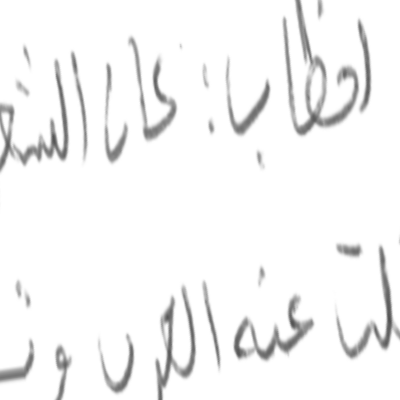 لخطاب : كان الشعـ
ـلت عنه العرب و